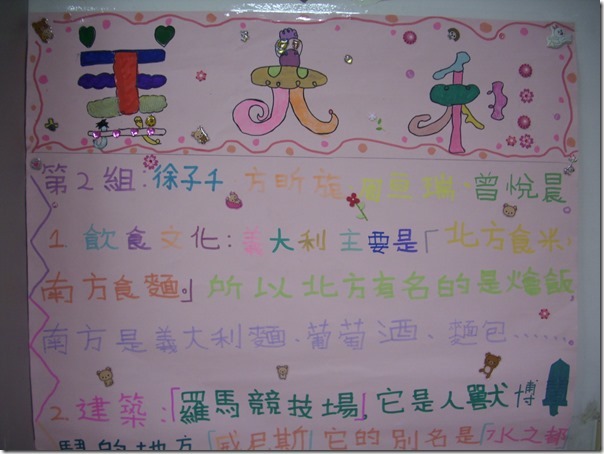 義大利
第2組:徐子千、方昕旋、瑞、曾悅晨
1. 飲食文化:義大利主要是「北方食米、
南方食麵。」所以北方有名的是燴飯
南方是義大利麵、葡萄酒、麵包……
2. 建築:「羅馬競技場」,它是人獸博
鬥的地方「威尼斯」它的別名是「水之都